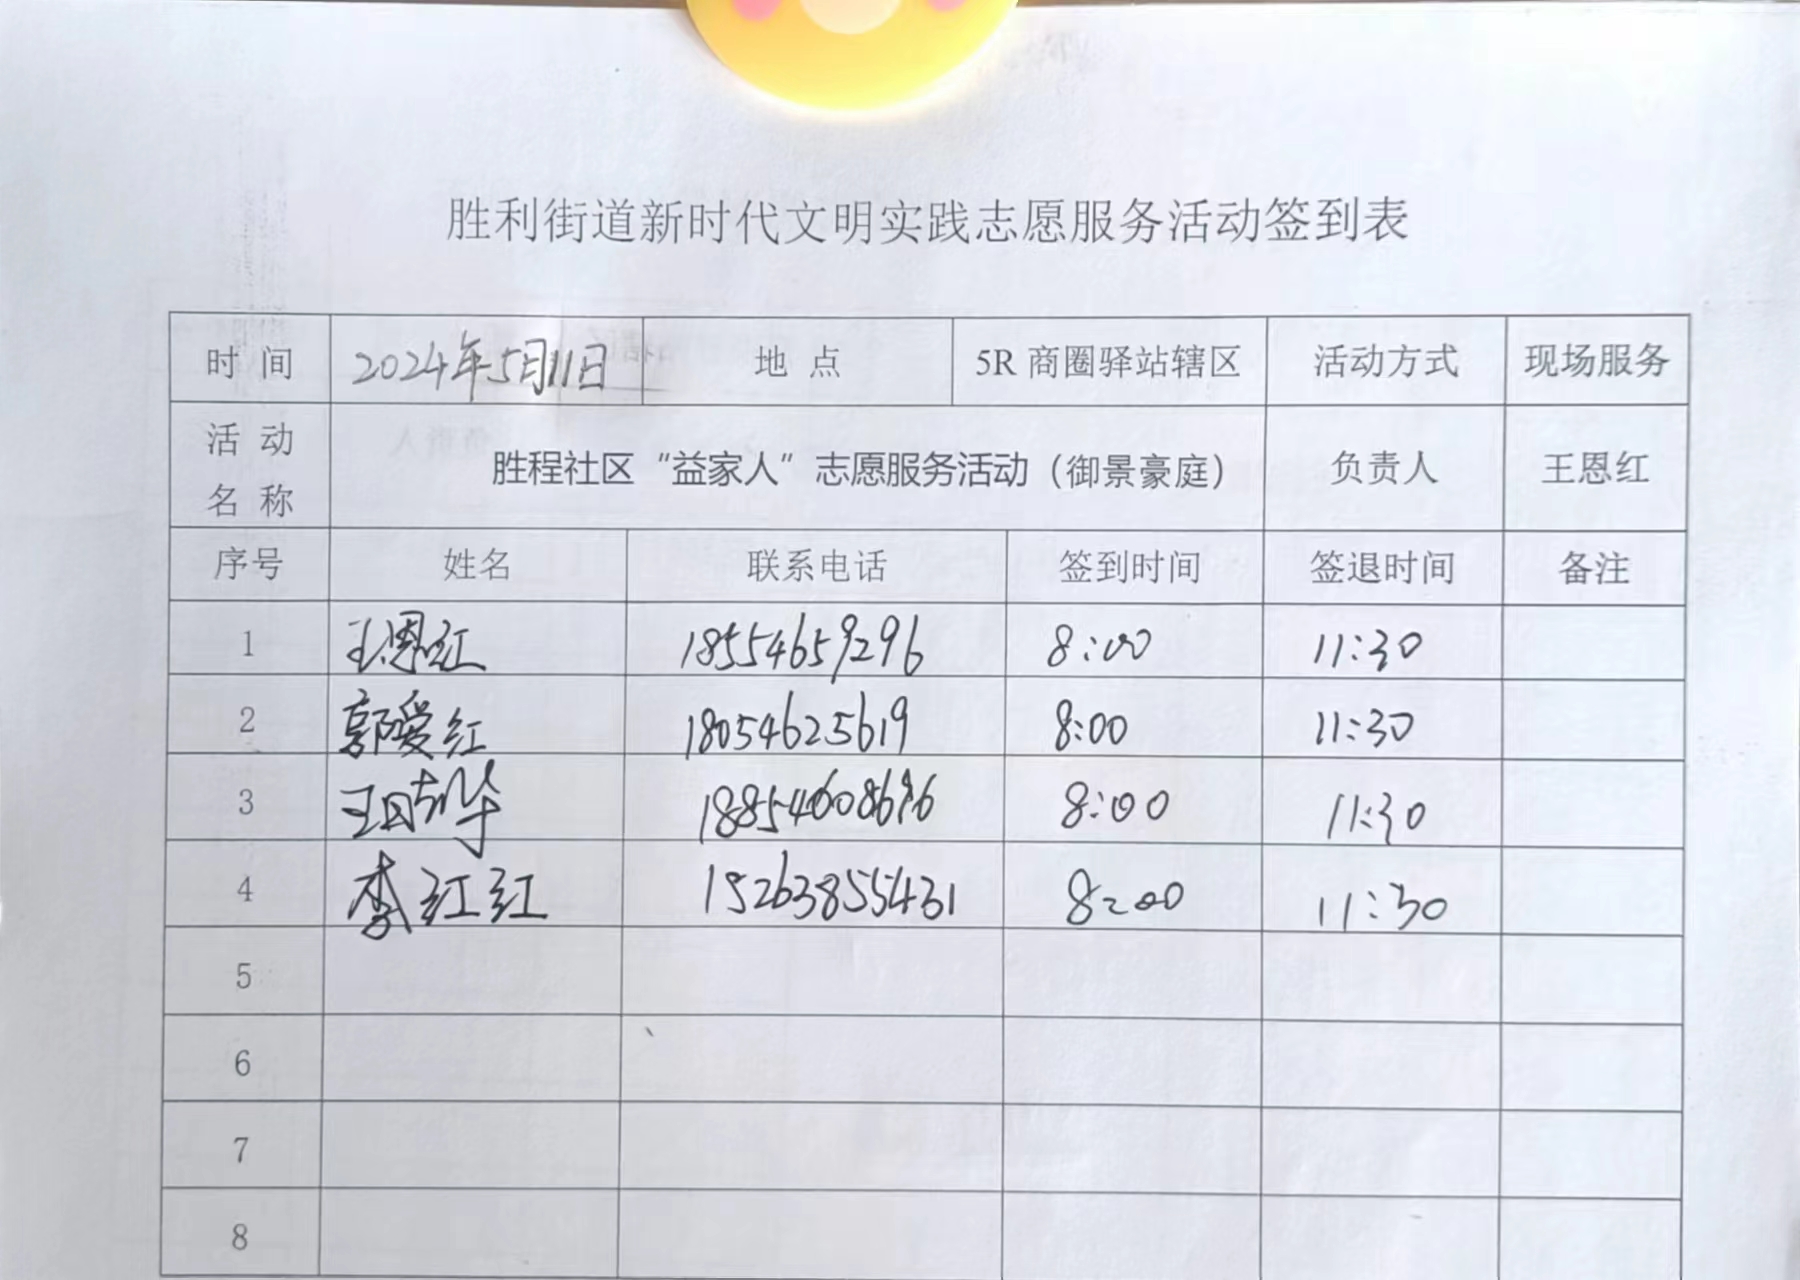 胜利街道新时代文明实践志愿服务活动签到表
时 间 2024年5月11日 地 点 5R 商圈驿站辖区 活动方式 现场服务
活 动 名 称 胜程社区“益家人”志愿服务活动（御景豪庭） 负责人 王恩红
序号 姓名 联系电话 签到时间 签退时间 备注
1 王恩红 18554659296 8:00 11:30
2 郭爱红 18054625619 8:00 11:30
3 8:00 11:30
4 李红红 15263855431 8:00 11:30
5
6
7
8